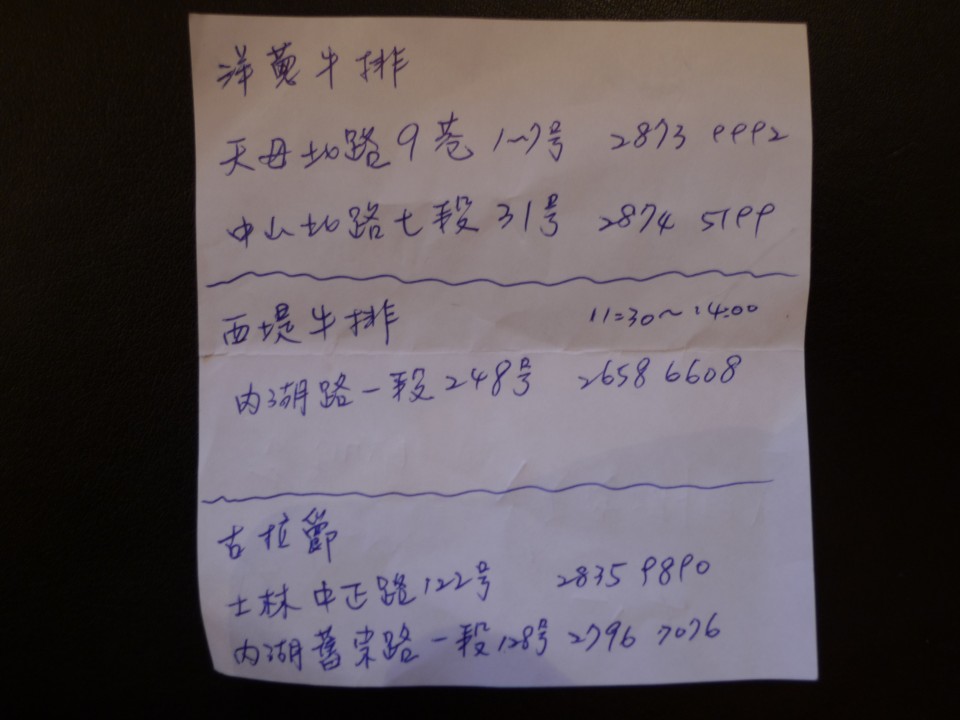 洋蔥牛排
天母北路9巷1~7号 2873 9992
中山北路七段31号 2874 5199
西堤牛排 11:30~14:00
内湖路一段248号 2658 6608
古拉爵
士林中正路122号 2835 9890
内湖舊宗路一段128号 2796 7076